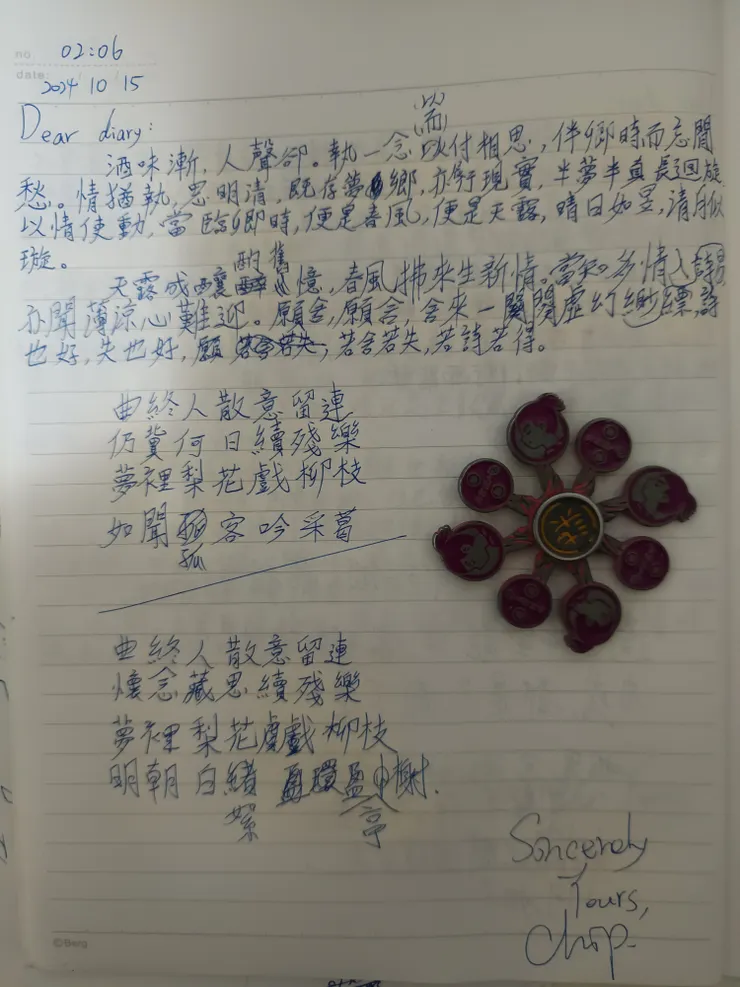 no 02:06
date: 2024 10 15
Dear diary:
(以)
而
酒味漸,人聲卻。執一念以付相思,伴鄉時而忘閒
愁。情猶執,思明清,既存夢鄉,亦行現實,半夢半真長迴旋
以情使動,當臨鄉時,便是春風,便是天露,晴日如昱,清月似
璇。
酌舊
天露成釀憶,春風拂來生新情。當知多情入詩
亦聞薄涼心難迎。願舍,願舍,舍來一闋虛幻縹緲,詩
也好,失也好,願若舍若失,若詩若得。
曲終人散意留連
仍冀何日續殘樂
夢裡梨花戲柳枝
如聞客吟采葛
孤
曲終人散意留連
懷念藏思續殘樂
夢裡梨花戲柳枝
明朝白緒環榭.
絮 亭
Sincerely
Yours,
Chip.
©Berg